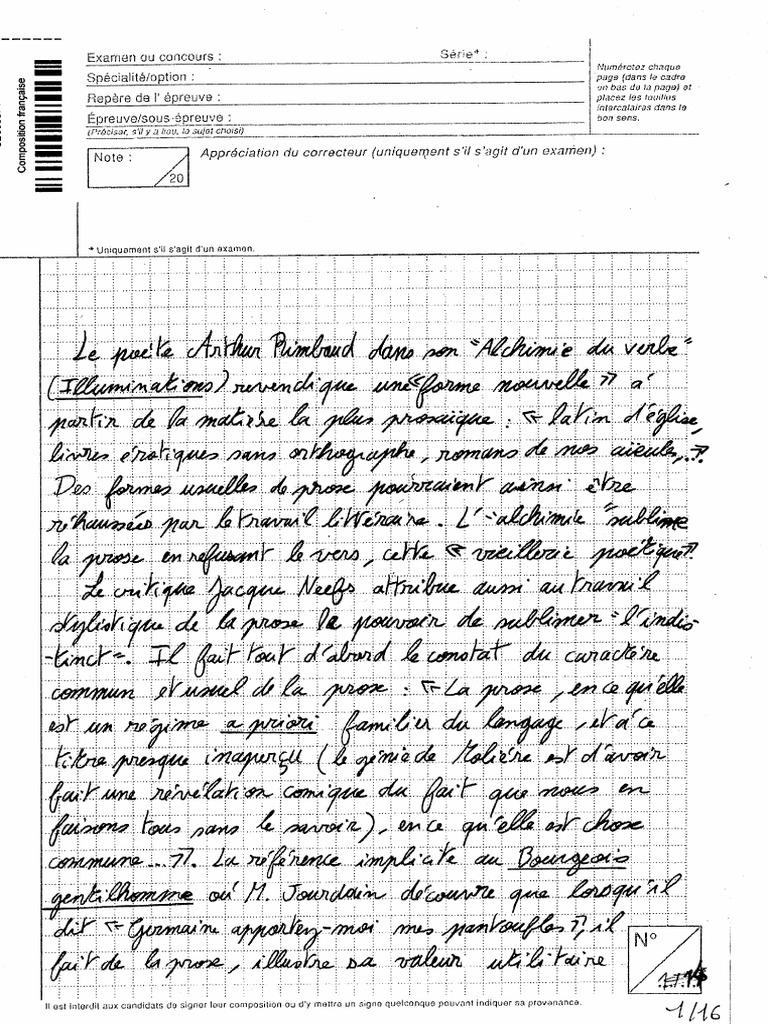 Composition française
Examen ou concours : Série* :
Spécialité/option :
Repère de l'épreuve :
Épreuve/sous-épreuve :
(Préciser, s'il y a lieu, le sujet choisi)
Numérotez chaque
page (dans le cadre
en bas de la page) et
placez les feuilles
intercalaires dans le
bon sens.
Note :
20
Appréciation du correcteur (uniquement s'il s'agit d'un examen) :
* Uniquement s'il s'agit d'un examen.
Le poète Arthur Rimbaud dans son "Alchimie du verbe"
(Illuminations) revendique une « forme nouvelle » à
partir de la matière la plus prosaïque : « latin d'église,
livres érotiques sans orthographe, romans de nos aïeules,.. ».
Des formes usuelles de prose pourraient ainsi être
réhaussées par le travail littéraire. L'"alchimie" sublime
la prose en refusant le vers, cette « vieillerie poétique ».
Le critique Jacque Neefs attribue aussi au travail
stylistique de la prose le pouvoir de sublimer "l'indis-
-tinct". Il fait tout d'abord le constat du caractère
commun et usuel de la prose : « La prose, en ce qu'elle
est un régime a priori familier du langage, et à ce
titre presque inaperçu (le génie de Molière est d'avoir
fait une révélation comique du fait que nous en
faisons tous sans le savoir), en ce qu'elle est chose
commune... ». La référence implicite au Bourgeois
gentilhomme où M. Jourdain découvre que lorsqu'il
dit « Germaine apportez-moi mes pantoufles », il
fait de la prose, illustre sa valeur utilitaire
N°
1/16
Il est interdit aux candidats de signer leur composition ou d'y mettre un signe quelconque pouvant indiquer sa provenance.